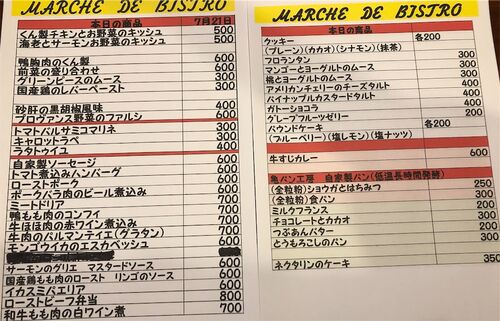 MARCHE DE BISTRO
本日の商品 7月21日
くん製チキンとお野菜のキッシュ 500
海老とサーモンお野菜のキッシュ 500
鴨胸肉のくん製 600
前菜の盛り合わせ 600
グリーンピースのムース 300
国産鶏のレバーペースト 300
砂肝の黒胡椒風味 400
プロヴァンス野菜のファルシ 600
トマトバルサミコマリネ 300
キャロットラペ 300
ラタトゥイユ 400
自家製ソーセージ 600
トマト煮込みハンバーグ 600
ローストポーク 600
ポークバラ肉のビール煮込み 600
ミートドリア 700
鴨もも肉のコンフィ 700
牛ほほ肉の赤ワイン煮込み 700
牛肉のパルマンティエ(グラタン) 700
モンゴウイカのエスカベッシュ 600
サーモンのグリエ マスタードソース 600
国産鶏もも肉のロースト リンゴのソース 600
イカスミパエリア 600
ローストビーフ弁当 800
和牛もも肉の白ワイン煮 700
MARCHE DE BISTRO
本日の商品
クッキー 各200
(プレーン)(カカオ)(シナモン)(抹茶)
フロランタン 300
マンゴーとヨーグルトのムース 300
桃とヨーグルトのムース 300
アメリカンチェリーのチーズタルト 400
パイナップルカスタードタルト 400
ガトーショコラ 400
グレープフルーツゼリー 200
パウンドケーキ 各200
(フルーベリー)(塩レモン)(塩ナッツ)
牛すじカレー 600
亀パン工房 自家製パン(低温長時間発酵)
(全粒粉)ショウガとはちみつ 250
(全粒粉)食パン 300
ミルクフランス 200
チョコレートとカカオ 300
つぶあんバター 300
とうもろこしのパン 300
ネクタリンのケーキ 350